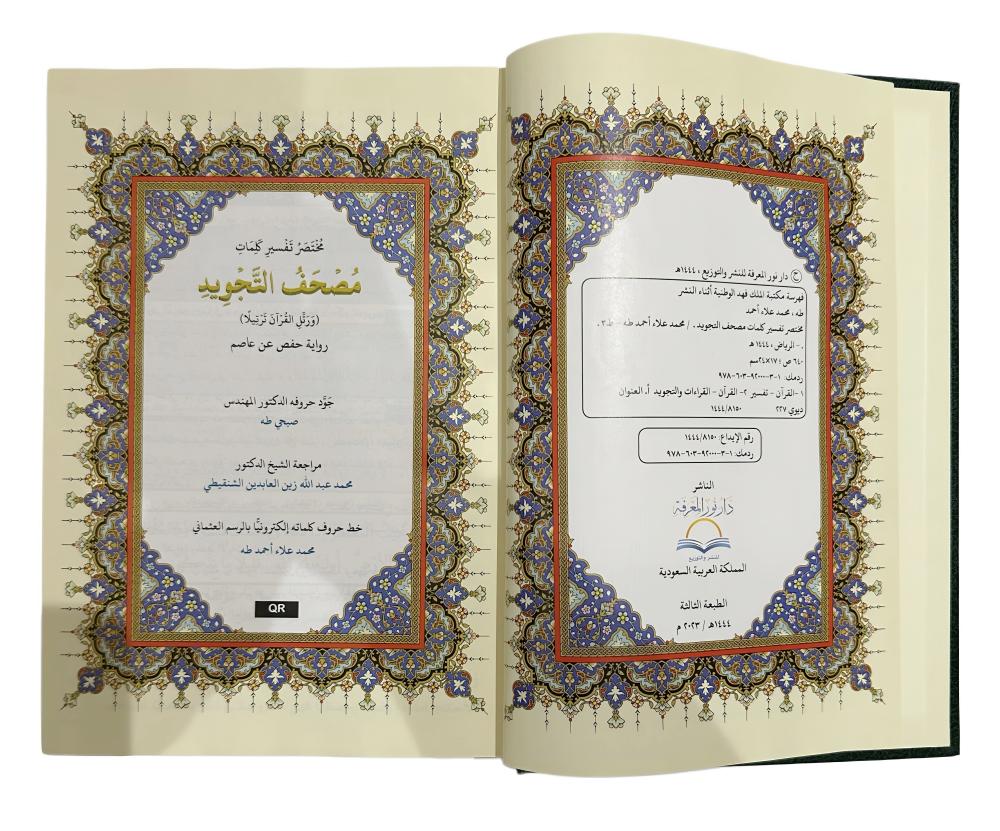 ح دار نور المعرفة للنشر والتوزيع ، ١٤٤٤هـ
فهرسة مكتبة الملك فهد الوطنية أثناء النشر
طه ، محمد علاء أحمد
مختصر تفسير كلمات مصحف التجويد . / محمد علاء أحمد طه - ط٣ .
.- الرياض ، ١٤٤٤ هـ
٦٤٠ ص ؛ ١٧×٢٤سم
ردمك: ١-٣-٩٢٠٠٠-٦٠٣-٩٧٨
١-القرآن - تفسير ٢- القرآن - القراءات والتجويد أ. العنوان
ديوي ٢٢٧ ١٤٤٤/٨١٥٠
رقم الإيداع: ١٤٤٤/٨١٥٠
ردمك: ١-٣-٩٢٠٠٠-٦٠٣-٩٧٨
الناشر
دار نور المعرفة
للنشر والتوزيع
المملكة العربية السعودية
الطبعة الثالثة
١٤٤٤هـ / ٢٠٢٣ م
مُخْتَصَرُ تَفْسِيرِ كَلِمَاتِ
مُصْحَفُ التَّجْوِيدِ
(وَرَتِّلِ القُرْآنَ تَرْتِيلًا)
رواية حفص عن عاصم
جَوَّد حروفه الدكتور المهندس
صبحي طه
مراجعة الشيخ الدكتور
محمد عبد الله زين العابدين الشنقيطي
خط حروف كلماته إلكترونيًّا بالرسم العثماني
محمد علاء أحمد طه
QR